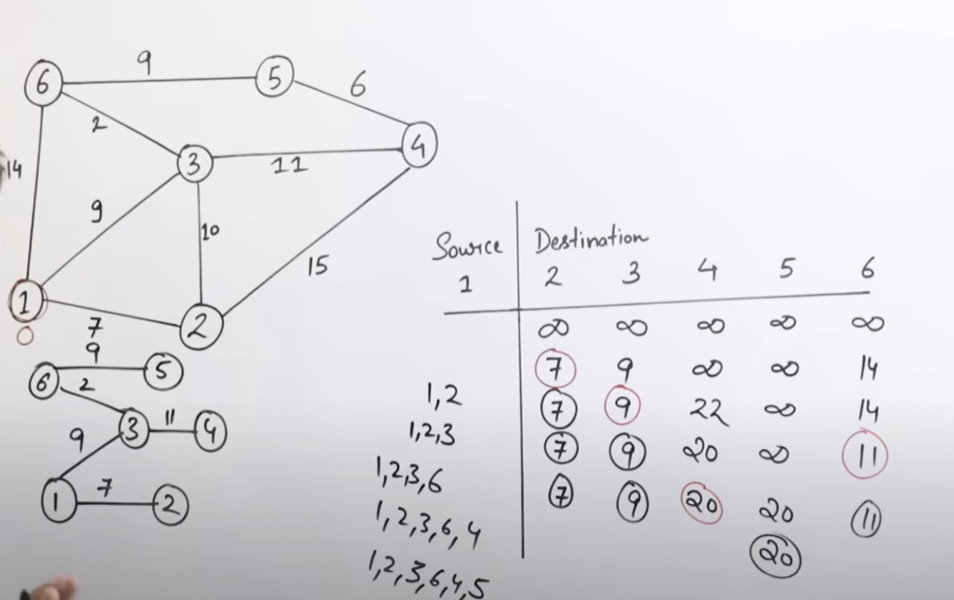 9
6 5 6
2
3 11 4
14
9
10
15
1 7 2
0
9
6 5
2
3 11 4
9
1 7 2
Source Destination
1 2 3 4 5 6
∞ ∞ ∞ ∞ ∞
7 9 ∞ ∞ 14
1,2 7 9 22 ∞ 14
1,2,3 7 9 20 ∞ 11
1,2,3,6 7 9 20 20 11
1,2,3,6,4 20
1,2,3,6,4,5